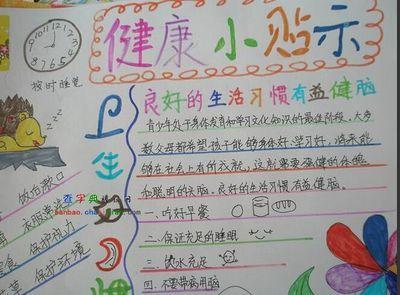 健康小贴示
12
1
2
3
4
5
6
7
8
9
10
11
按时睡觉
良好的生活习惯有益健脑
青少年处于身体发育和学习文化知识的最佳阶段,大多
数父母都希望孩子能够身体好、学习好,将来能
够在社会上有所成就,这就需要强健的体魄
和聪明的头脑。良好的生活习惯有益健脑。
一、吃好早餐
二、保证充足的睡眠
三、饮水充足
四、不要带病用脑
卫生习惯
查字典
banbao.cha
饭后漱口
衣服常洗
保护视力
保护环境